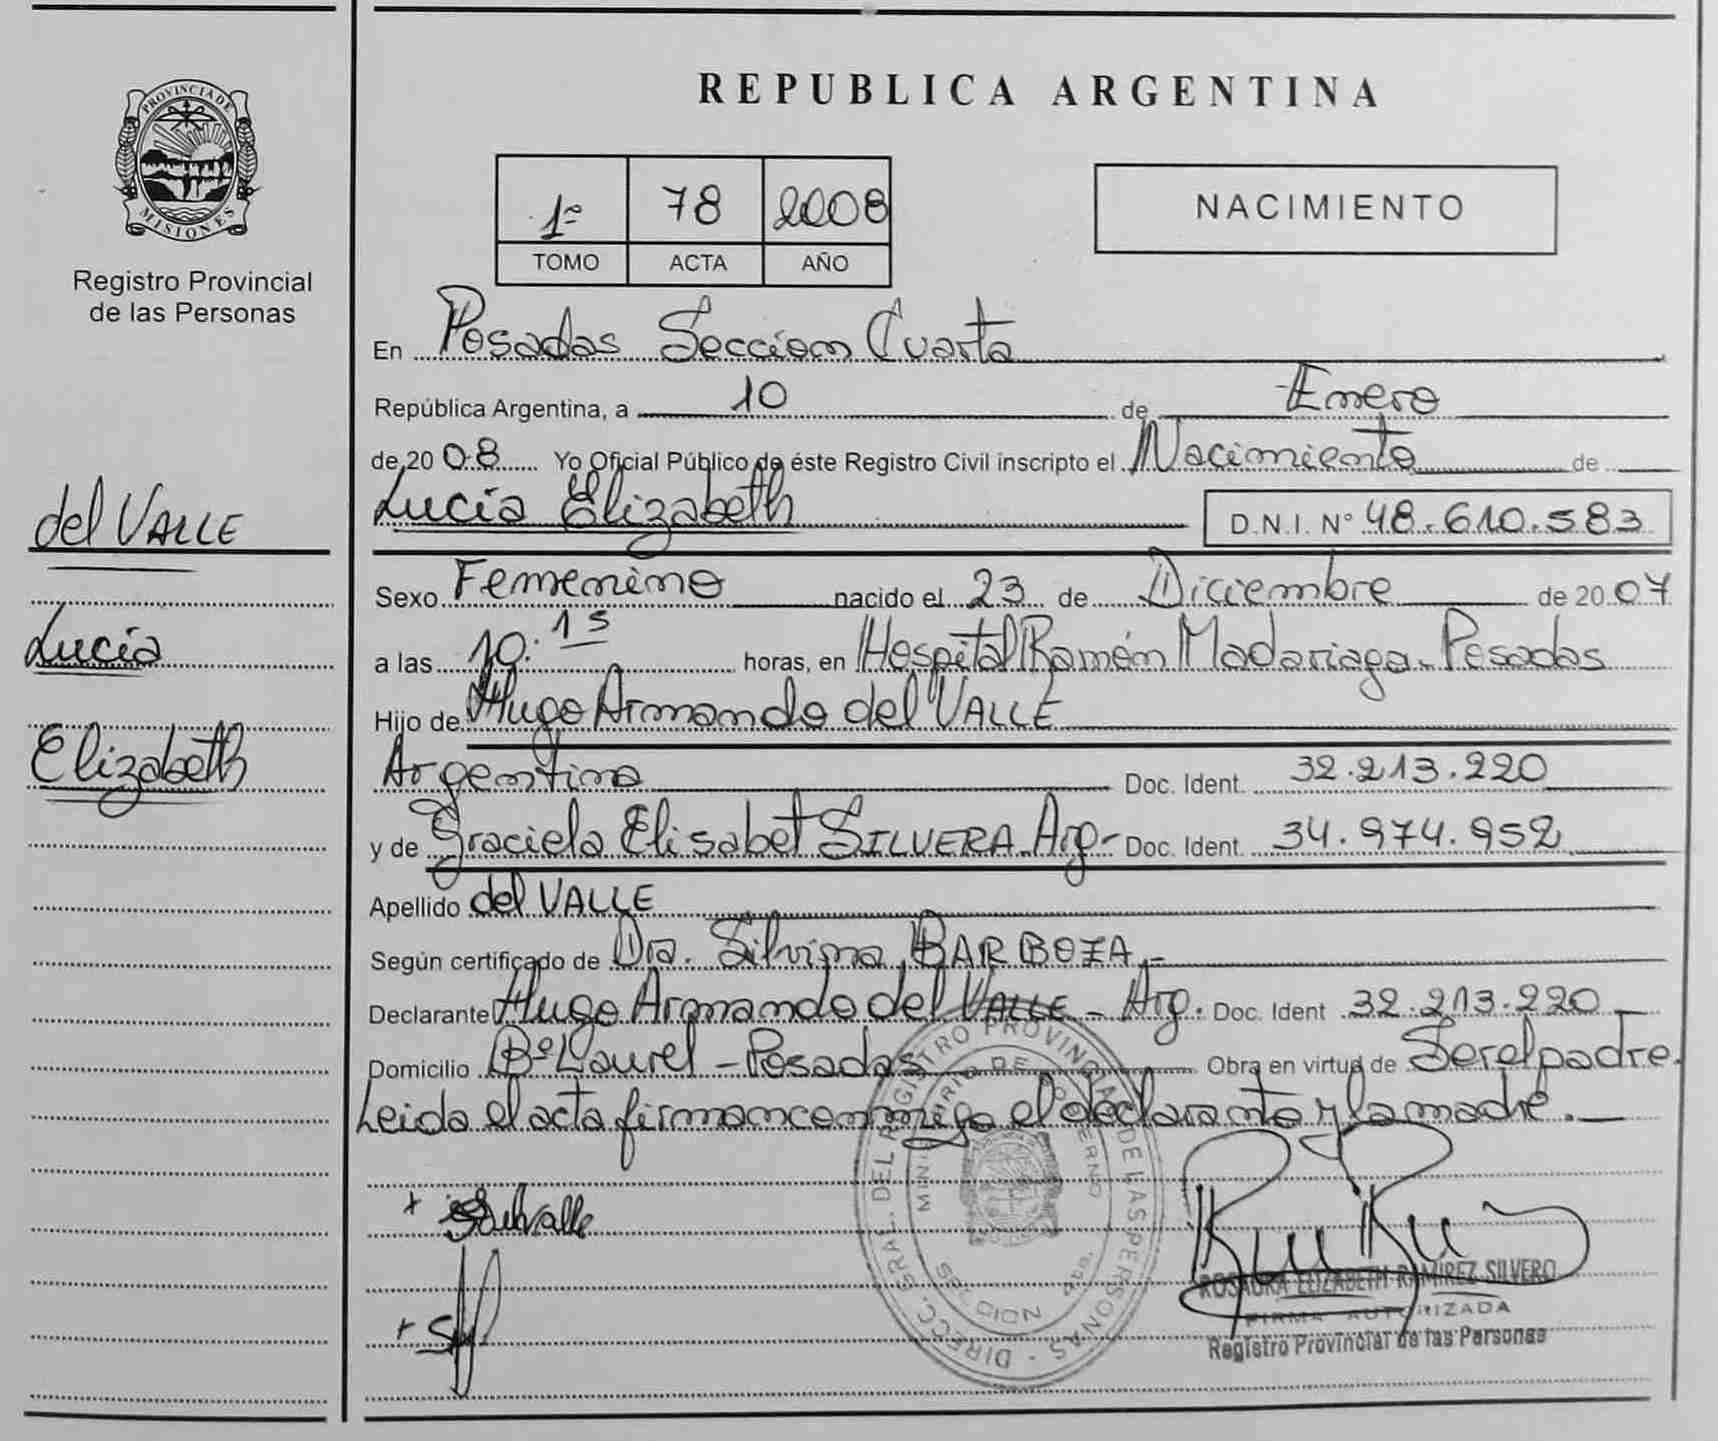 PROVINCIA DE
MISIONES
Registro Provincial
de las Personas
del VALLE
Lucía
Elizabeth
REPUBLICA ARGENTINA
1º 78 2008
TOMO ACTA AÑO
NACIMIENTO
En Posadas Seccion Cuarta
República Argentina, a 10 de Enero
de 2008 Yo Oficial Público de éste Registro Civil inscripto el Nacimiento de
Lucía Elizabeth D.N.I. Nº 48.610.583
Sexo Femenino nacido el 23 de Diciembre de 2007
a las 10:15 horas, en Hospital Ramón Madariaga - Posadas
Hijo de Hugo Armando del VALLE
Argentino Doc. Ident. 32.213.220
y de Graciela Elisabet SILVERA Arg- Doc. Ident. 34.974.952
Apellido del VALLE
Según certificado de Dra. Silvina BARBOZA.-
Declarante Hugo Armando del VALLE - Arg. Doc. Ident 32.213.220
Domicilio Bº Laurel - Posadas Obra en virtud de Ser el padre.
Leida el acta firman conmigo el declarante y la madre.
DIRECC. GRAL. DEL REGISTRO PROVINCIAL DE LAS PERSONAS
+ delvalle
+
ROSAURA ELIZABETH RAMIREZ SILVERO
FIRMA AUTORIZADA
Registro Provincial de las Personas